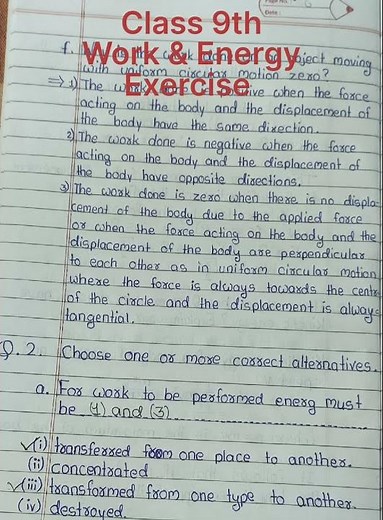 Class 9th
Work & Energy
Exercise
Date :
f. object moving
with uniform circular motion zero?
⇒ 1) The when the force
acting on the body and the displacement of
the body have the same direction.
2) The work done is negative when the force
acting on the body and the displacement of
the body have opposite directions.
3) The work done is zero when there is no displa-
cement of the body due to the applied force
or when the force acting on the body and the
displacement of the body are perpendicular
to each other as in uniform circular motion,
where the force is always towards the centre
of the circle and the displacement is always
tangential.
Q.2. Choose one or more correct alternatives.
a. For work to be performed energ must
be (4) and (3)
✓(i) transferred from one place to another.
(ii) concentrated
✓(iii) transformed from one type to another.
(iv) destroyed.